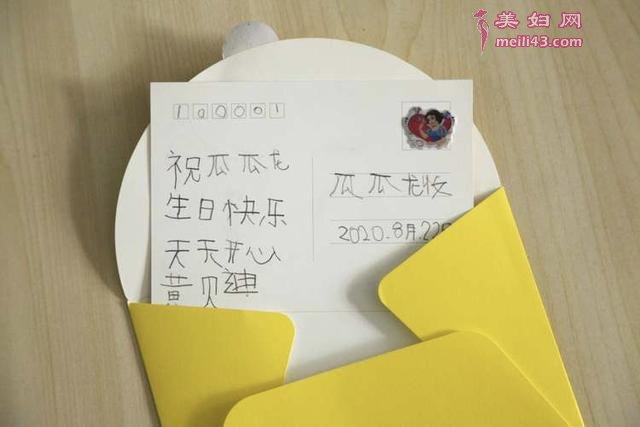 美妇网
meili43.com
100001
祝瓜瓜龙
生日快乐
天天开心
黄贝
瓜瓜龙收
2020.8.22